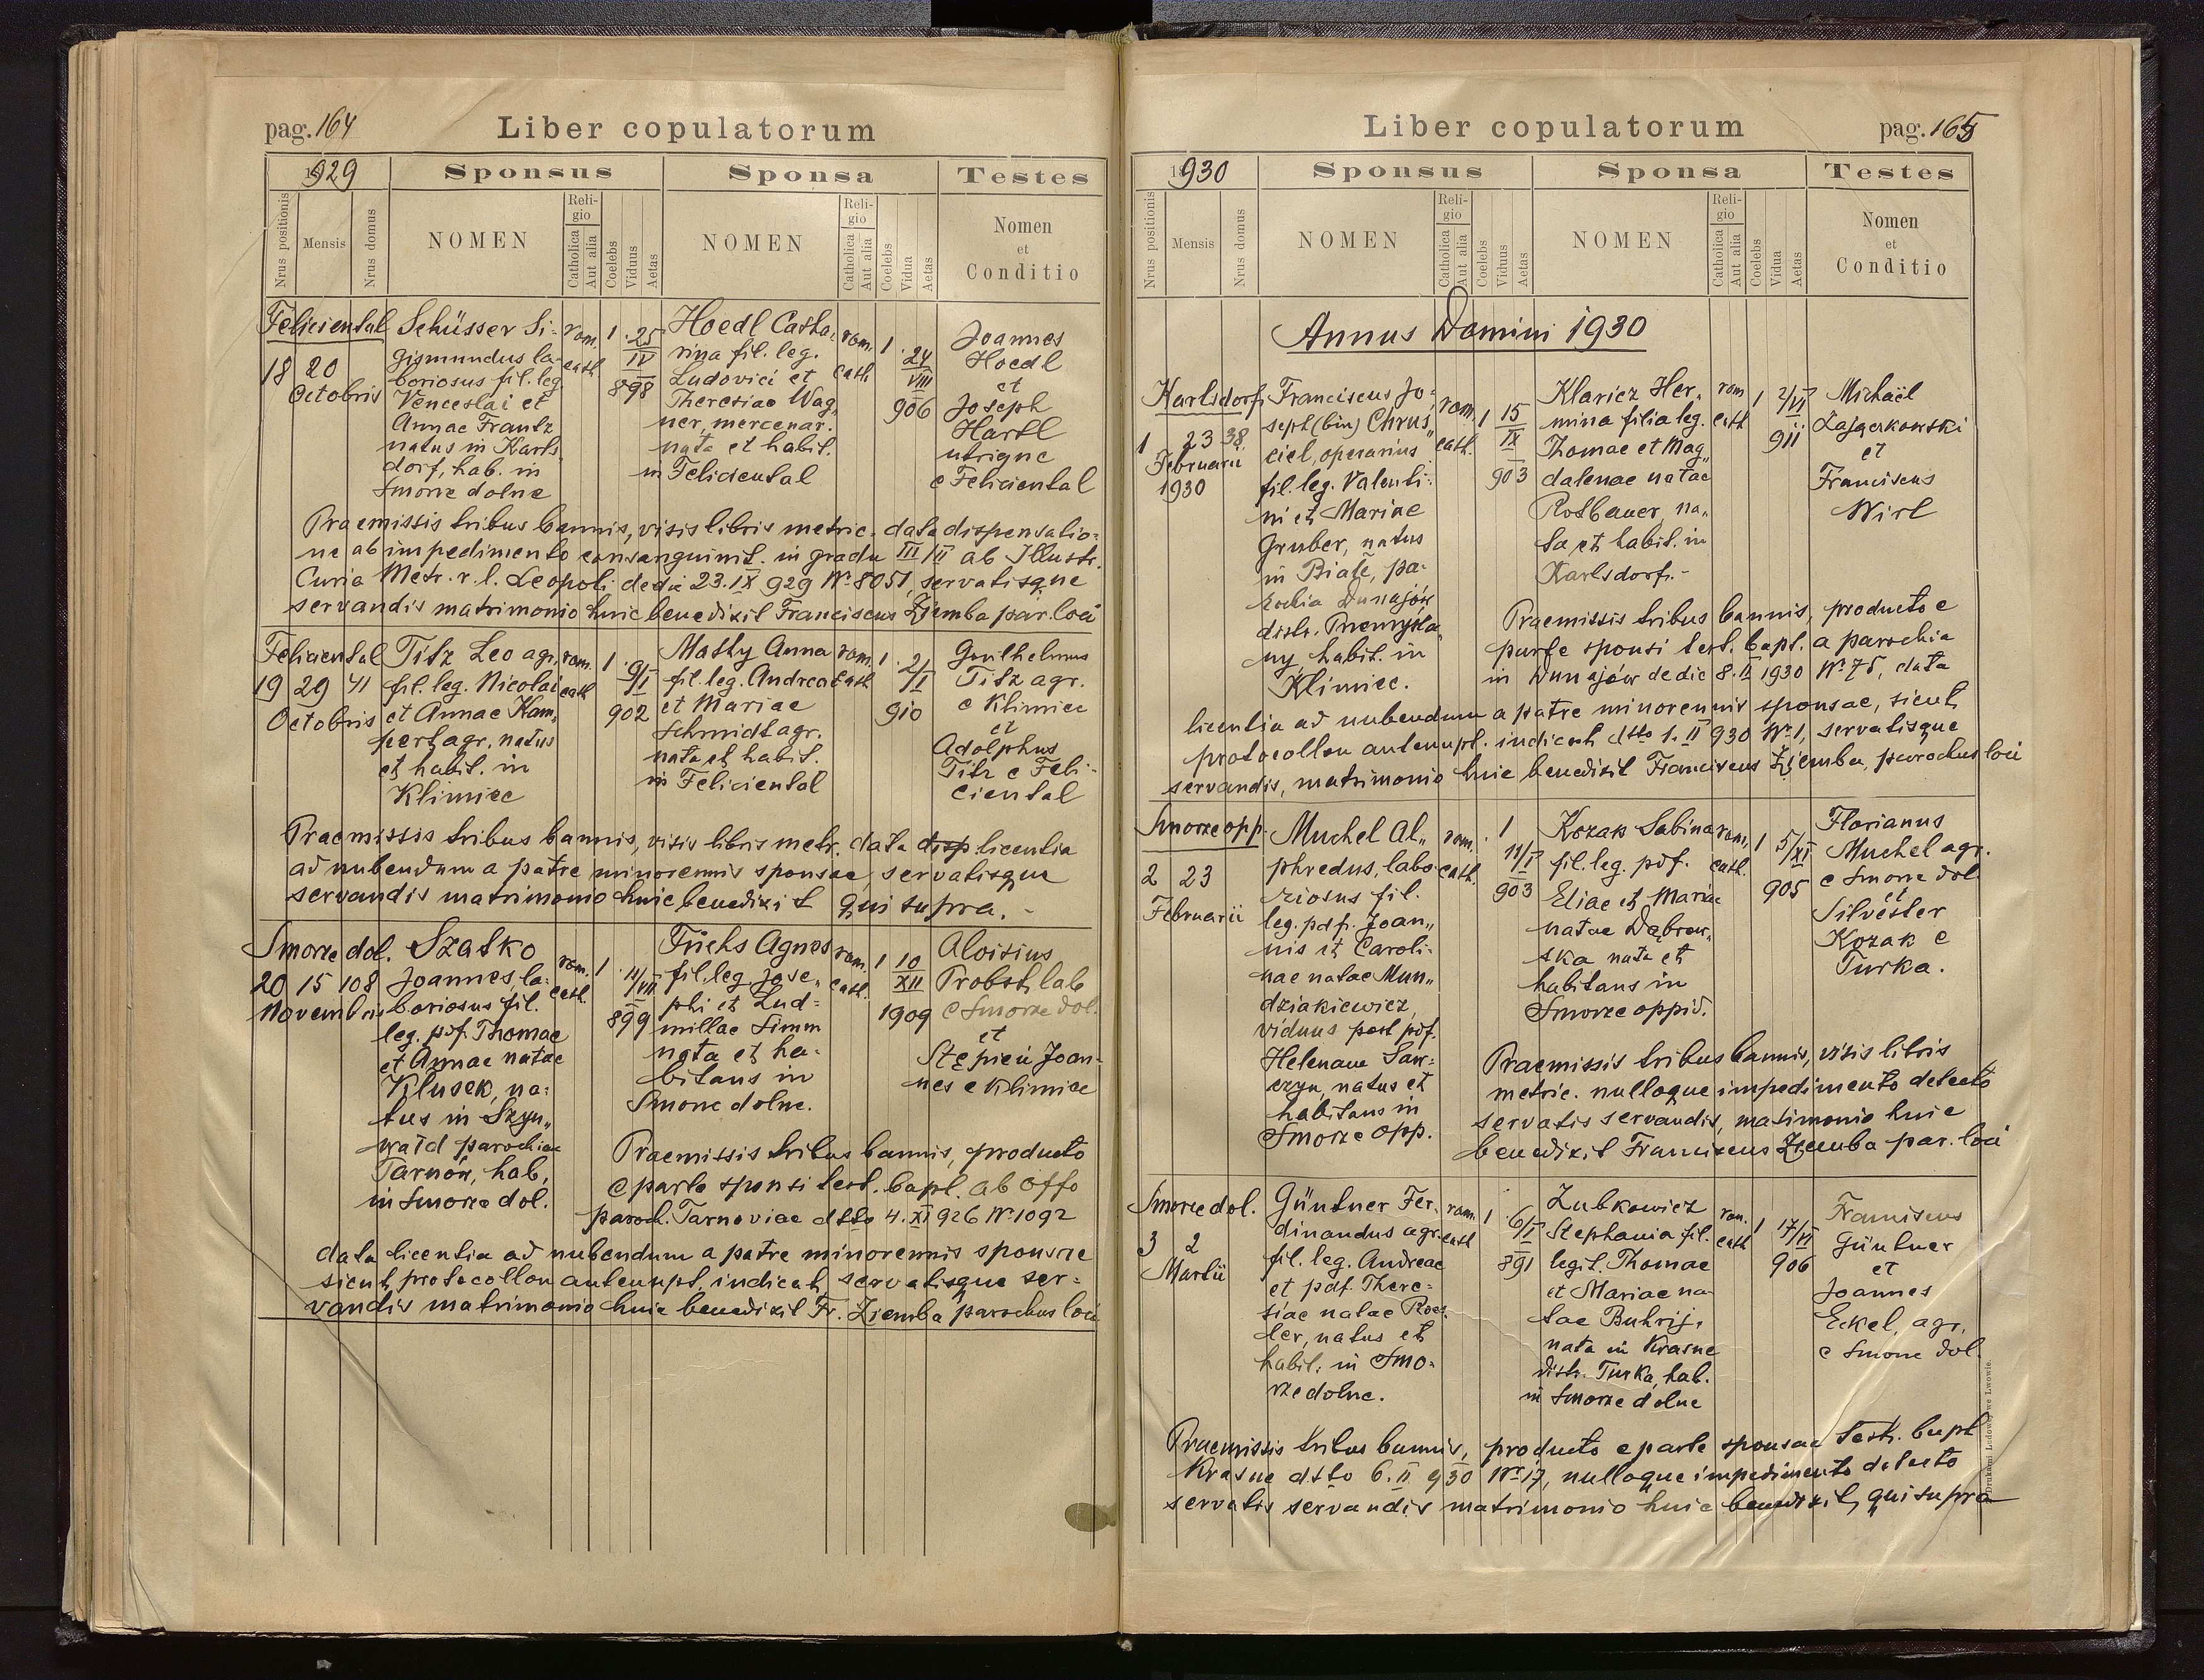 pag. 164
Liber copulatorum
1929
Sponsus
Sponsa
Testes
Nrus positionis
Mensis
Nrus domus
NOMEN
Religio
Catholica
Aut alia
Coelebs
Viduus
Aetas
NOMEN
Religio
Catholica
Aut alia
Coelebs
Vidua
Aetas
Nomen
et
Conditio
Feliciental
18 20
Octobris
Schüsser Si-
gismundus la-
boriosus fil. leg.
Venceslai et
Annae Frantz
natus in Karls
dorf, hab. in
Smorze dolne
rom.
cath.
1
25
IV
898
Hoedl Catha-
rina fil. leg.
Ludovici et
Theresiae Wag„
ner, mercenar.
nata et habit.
in Feliciental
rom.
cath
1
24
VIII
906
Joannes
Hoedl
et
Joseph
Hartl
utrique
e Feliciental
Praemissis tribus bannis, visis libris metric. data dispensatio-
ne ab impedimento consanguinit. in gradu III/II ab Illustr.
Curia Metr. r. l. Leopoli de di 23.IX 929 Nº 8051, servatisque
servandis matrimonio huic benedixit Franciscus Ziemba par. loci
Feliciental
19 29 41
Octobris
Titz Leo agr.
fil. leg. Nicolai
et Annae Kam„
pert agr. natus
et habit. in
Klimiec
rom.
cath
1
9/I
902
Mathy Anna
fil. leg. Andreae
et Mariae
Schmidt agr.
nata et habit.
in Feliciental
rom.
cath
1
2/I
910
Guilhelmus
Titz agr.
e Klimiec
et
Adolphus
Titz e Feli-
ciental
Praemissis tribus bannis, visis libris metr. data disp licentia
ad nubendum a patre minorennis sponsae, servatisque
servandis matrimonio huic benedixit qui supra. -
Smorze dol.
20 15 108
Novembris
Szatko
Joannes, la-
boriosus fil.
leg. pdf. Thomae
et Annae natae
Klusek, na-
tus in Szyn„
wałd parochiae
Tarnów, hab,
in Smorze dol.
rom.
cath.
1
11/VII
899
Füchs Agnes
fil. leg. Jose„
phi et Lud-
millae Simm
nata et ha-
bitans in
Smorze dolne.
rom.
cath.
1
10
XII
1909
Aloisius
Probst, lab
e Smorze dol.
et
Stępień Joan-
nes e Klimiec
Praemissis tribus bannis, producto
e parte sponsi test. bapt. ab offo
paroch. Tarnoviae dtto 4.XI 926 Nº 1092
data licentia ad nubendum a patre minorennis sponsae
sicut protocollon antenupt. indicat, servatisque ser-
vandis matrimonio huic benedixit Fr. Ziemba parochus loci
Liber copulatorum
pag. 165
1930
Sponsus
Sponsa
Testes
Nrus positionis
Mensis
Nrus domus
NOMEN
Religio
Catholica
Aut alia
Coelebs
Viduus
Aetas
NOMEN
Religio
Catholica
Aut alia
Coelebs
Vidua
Aetas
Nomen
et
Conditio
Annus Domini 1930
Karlsdorf
1 23 38
Februarii
1930
Franciscus Jo-
seph (bin) Chruś„
ciel, operarius
fil. leg. Valenti-
ni et Mariae
Gruber, natus
in Białe, pa-
rochia Dunajów
distr. Przemyśla„
ny, habit. in
Klimiec.
rom.
cath.
1
15
IX
903
Klaricz Her„
mina filia leg.
Thomae et Mag„
dalenae natae
Rotbauer, na„
ta et habit. in
Karlsdorf. -
rom
cath
1
2/VI
911
Michaël
Zajączkowski
et
Franciscus
Wirl
Praemissis tribus bannis, producto e
parte sponsi test. bapt. a parochia
in Dunajów de die 8.II 1930 Nº 75, data
licentia ad nubendum a patre minorennis sponsae, sicut
protocollon antenupt. indicat dtto 1.II 930 Nº 1, servatisque
servandis, matrimonio huic benedixit Franciscus Ziemba, parochus loci
Smorze opp.
2 23
Februarii
Muchel Al„
phredus, labo
riosus fil.
leg. pdf. Joan„
nis et Caroli-
nae natae Mun„
dziakiewicz,
viduus post pdf.
Helenam Saw-
czyn, natus et
habitans in
Smorze opp.
rom.
cath.
1
11/I
903
Kozak Sabina
fil. leg. pdf.
Eliae et Mariae
natae Dąbrow„
ska nata et
habitans in
Smorze oppid.
rom,
cath.
1
5/XI
905
Florianus
Muchel agr.
e Smorze dol
et
Silvester
Kozak e
Turka.
Praemissis tribus bannis, visis libris
metric. nulloque impedimento detecto
servatis servandis, matimonio huic
benedixit Franciscus Ziemba par. loci
Smorze dol.
3 2
Martii
Güntner Fer-
dinandus agr.
fil. leg. Andreae
et pdf. There-
siae natae Roes„
ler, natus et
habit. in Smo-
rze dolne.
rom.
cath
1
6/I
891
Zubkowicz
Stephania fil.
legit. Thomae
et Mariae na-
tae Buhrij,
nata in Krasne
distr. Turka, hab.
in Smorze dolne
rom.
cath
1
17/VI
906
Franciscus
Güntner
et
Joannes
Eckel, agr,
e Smorze dol.
Praemissis tribus bannis, producto e parte sponsae Test. bapt
Krasne dtto 6.II 930 Nº 17, nulloque impedimento detecto
servatis servandis matrimonio huic benedixit, qui supra
Drukarni Ludowej we Lwowie.